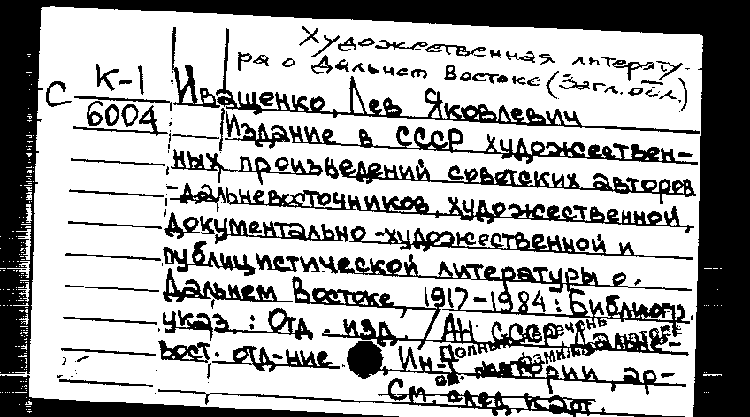 Художественная литерату-
ра о Дальнем Востоке (Загл. обл.)
С К-1
6004
Иващенко, Лев Яковлевич
Издание в СССР художествен-
ных произведений советских авторов
-дальневосточников, художественной,
документально-художественной и
публицистической литературы о
Дальнем Востоке, 1917-1984: Библиогр.
указ.: Отд. изд. / АН СССР, Дальне-
вост. отд-ние, Ин-т истории, ар-
Полный перечень
См. след. карт.